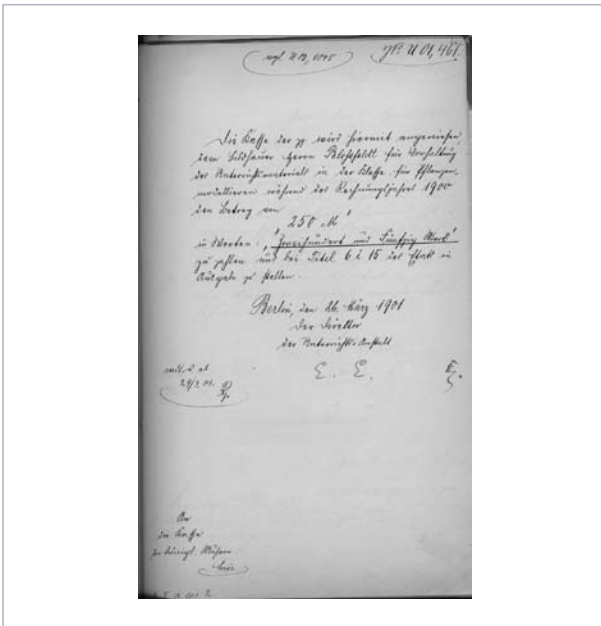 U 01, 461.
Die Kasse der pp wird hiermit angewiesen,
dem Bildhauer Herrn Bloßfeldt für Vorhaltung
des Unterrichtsmaterials in der Klasse für Pflanzen-
modellieren während des Rechnungsjahres 1900
den Betrag von
"250 M"
in Worten: "Zweihundert und Fünfzig Mark"
zu zahlen und bei Titel 6 i 15 des Etats in
Ausgabe zu stellen.
Berlin, den 26. März 1901
Der Direktor
der Unterrichts-Anstalt
E. E.
An
die Kasse
der Königl. Museen
hier